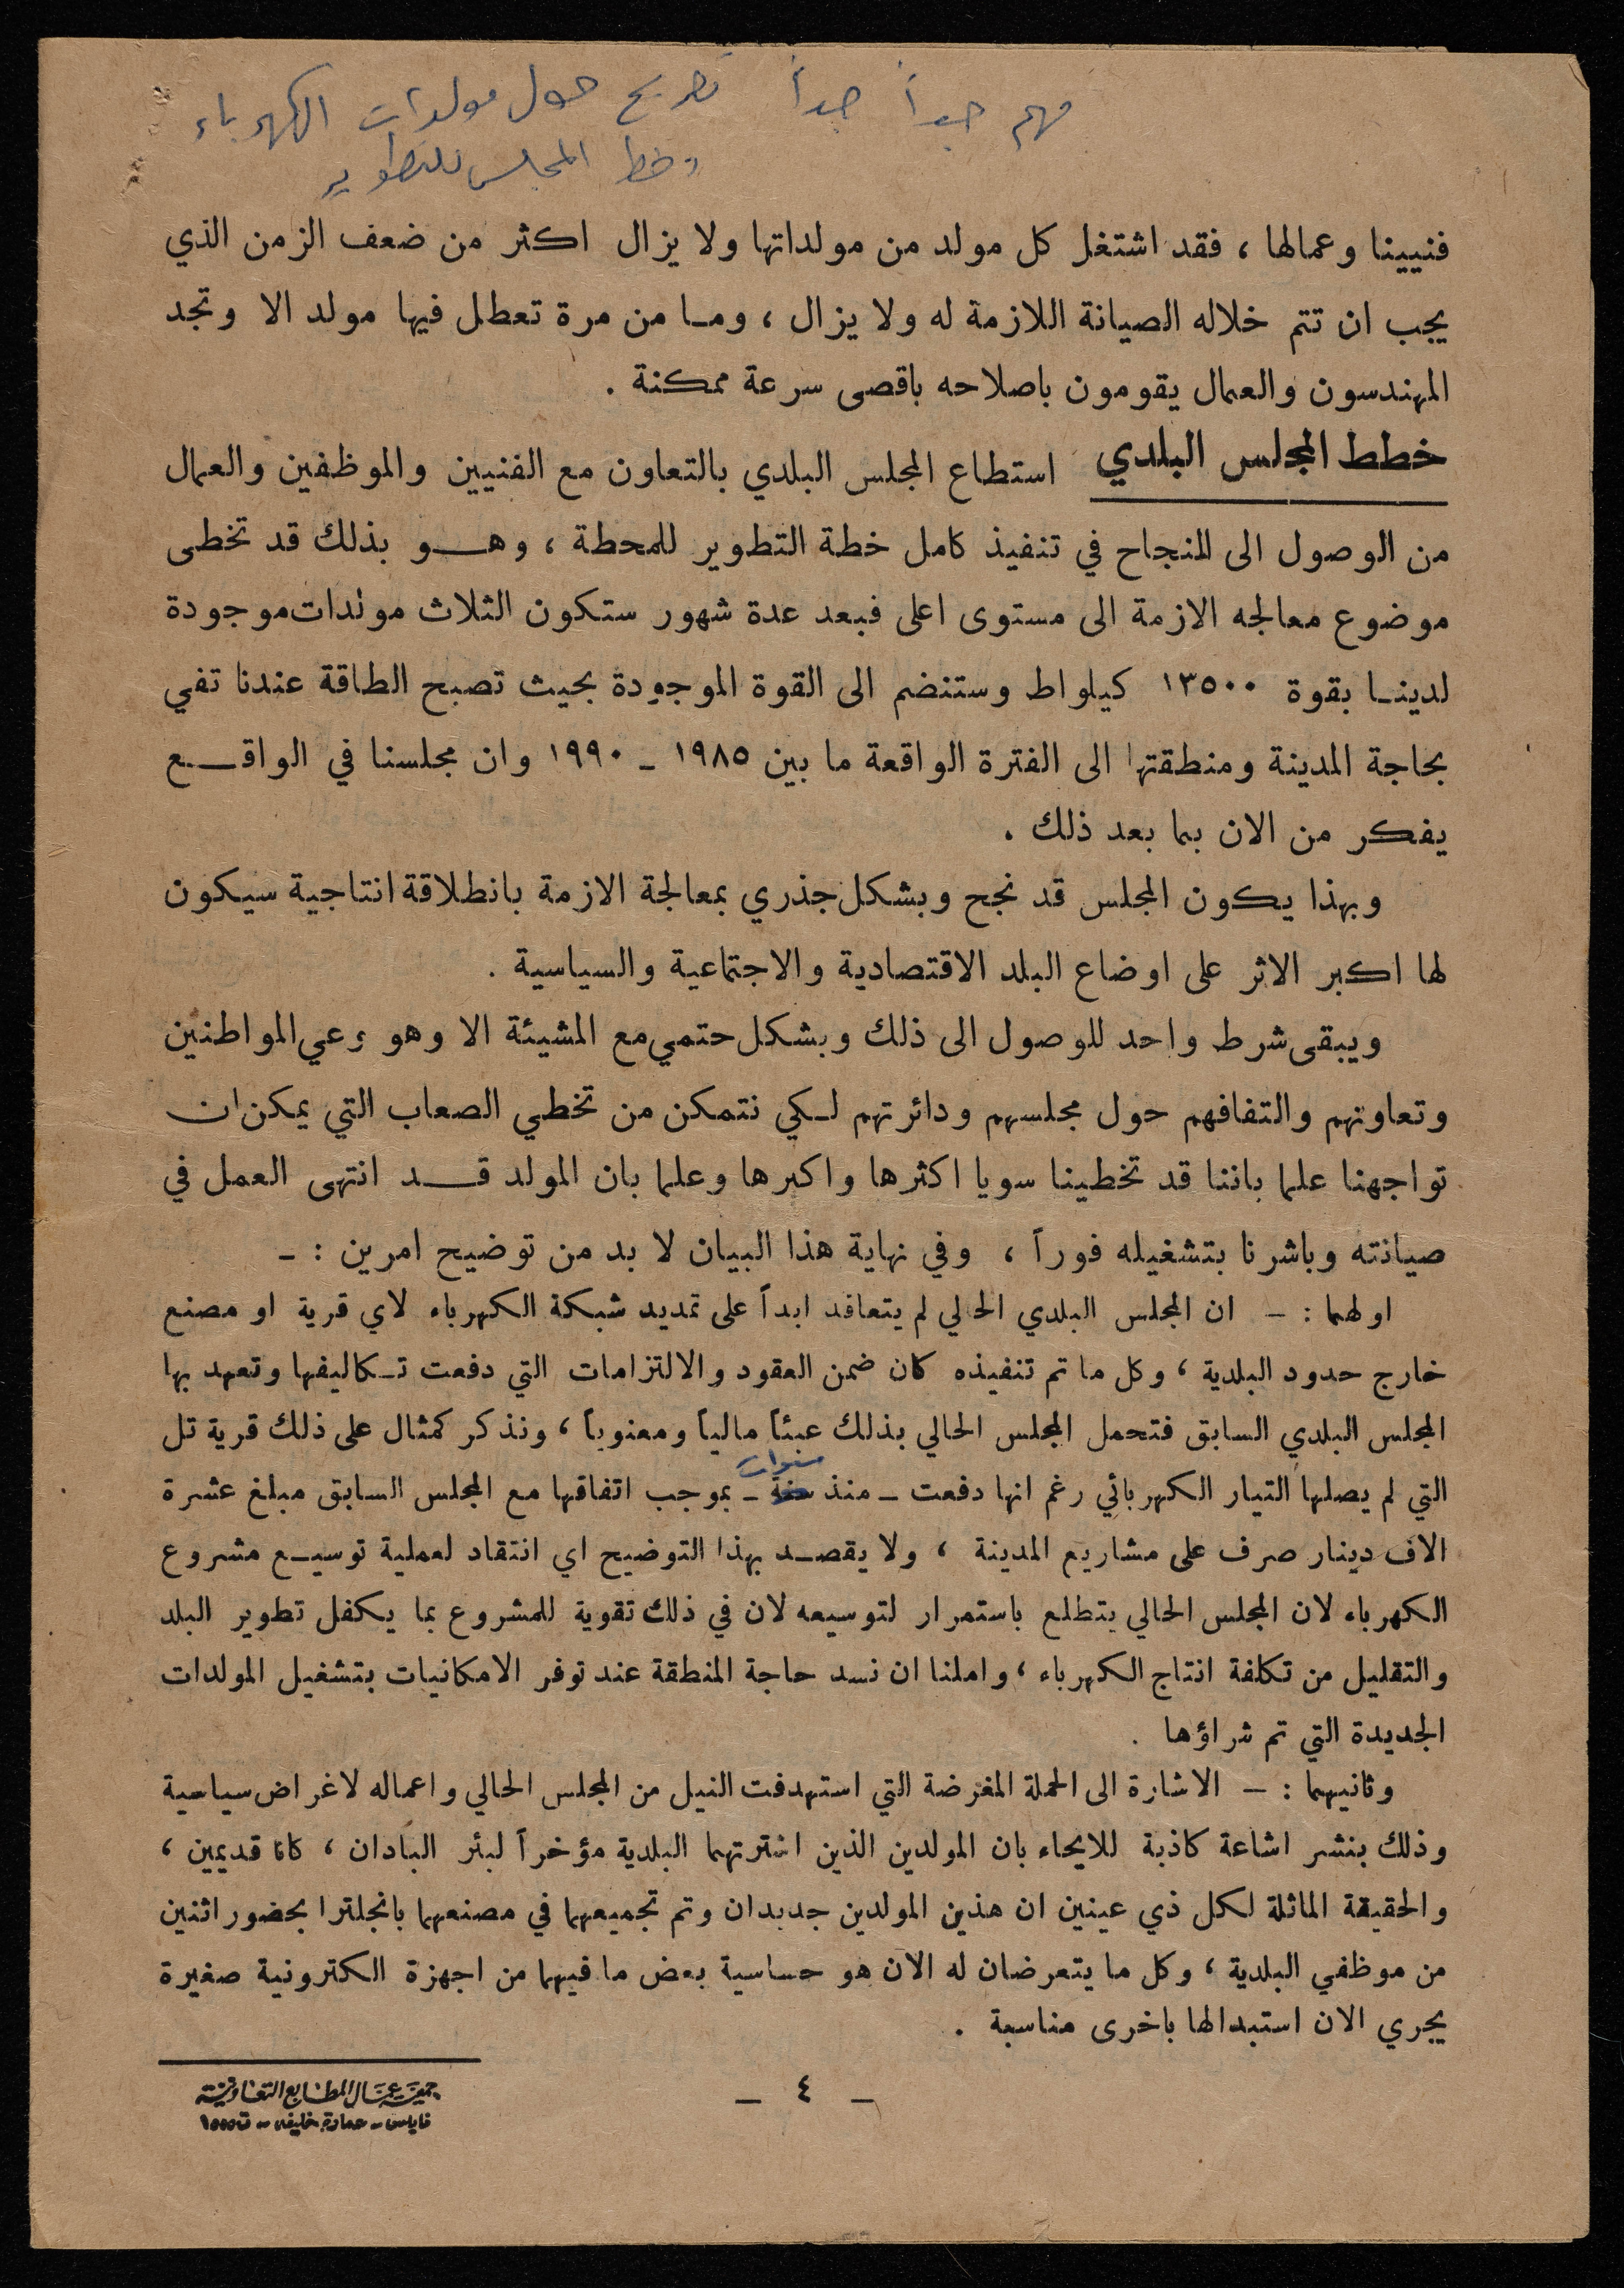 مهم جداً جداً تصريح حول مولدات الكهرباء
وخطط المجلس للتطوير
فنيينا وعمالها ، فقد اشتغل كل مولد من مولداتها ولا يزال اكثر من ضعف الزمن الذي
يجب ان تتم خلاله الصيانة اللازمة له ولا يزال ، وما من مرة تعطل فيها مولد الا وتجد
المهندسون والعمال يقومون باصلاحه باقصى سرعة ممكنة .
خطط المجلس البلدي استطاع المجلس البلدي بالتعاون مع الفنيين والموظفين والعمال
من الوصول الى النجاح في تنفيذ كامل خطة التطوير للمحطة ، وهو بذلك قد تخطى
موضوع معالجه الازمة الى مستوى اعلى فبعد عدة شهور ستكون الثلاث مولدات موجودة
لدينا بقوة ١٣٥٠٠ كيلواط وستنضم الى القوة الموجودة بحيث تصبح الطاقة عندنا تفي
بحاجة المدينة ومنطقتها الى الفترة الواقعة ما بين ١٩٨٥ - ١٩٩٠ وان مجلسنا في الواقع
يفكر من الان بما بعد ذلك .
وبهذا يكون المجلس قد نجح وبشكل جذري بمعالجة الازمة بانطلاقة انتاجية سيكون
لها اكبر الاثر على اوضاع البلد الاقتصادية والاجتماعية والسياسية .
ويبقى شرط واحد للوصول الى ذلك وبشكل حتمي مع المشيئة الا وهو وعي المواطنين
وتعاونهم والتفافهم حول مجلسهم ودائرتهم لكي نتمكن من تخطي الصعاب التي يمكن ان
تواجهنا علما باننا قد تخطينا سويا اكثرها واكبرها وعلما بان المولد قد انتهى العمل في
صيانته وباشرنا بتشغيله فوراً ، وفي نهاية هذا البيان لا بد من توضيح امرين : -
اولهما : - ان المجلس البلدي الحالي لم يتعاقد ابداً على تمديد شبكة الكهرباء لاي قرية او مصنع
خارج حدود البلدية ، وكل ما تم تنفيذه كان ضمن العقود والالتزامات التي دفعت تكاليفها وتعهد بها
المجلس البلدي السابق فتحمل المجلس الحالي بذلك عبئاً مالياً ومعنوياً ، ونذكر كمثال على ذلك قرية تل
سنوات
التي لم يصلها التيار الكهربائي رغم انها دفعت - منذ سنة - بموجب اتفاقها مع المجلس السابق مبلغ عشرة
الاف دينار صرف على مشاريع المدينة ، ولا يقصد بهذا التوضيح اي انتقاد لعملية توسيع مشروع
الكهرباء لان المجلس الحالي يتطلع باستمرار لتوسيعه لان في ذلك تقوية للمشروع بما يكفل تطوير البلد
والتقليل من تكلفة انتاج الكهرباء ، واملنا ان نسد حاجة المنطقة عند توفر الامكانيات بتشغيل المولدات
الجديدة التي تم شراؤها .
وثانيهما : - الاشارة الى الحملة المغرضة التي استهدفت النيل من المجلس الحالي واعماله لاغراض سياسية
وذلك بنشر اشاعة كاذبة للايحاء بان المولدين الذين اشترتهما البلدية مؤخراً لبئر البادان ، كانا قديمين ،
والحقيقة الماثلة لكل ذي عينين ان هذين المولدين جديدان وتم تجميعهما في مصنعهما بانجلترا بحضور اثنين
من موظفي البلدية ، وكل ما يتعرضان له الان هو حساسية بعض ما فيهما من اجهزة الكترونية صغيرة
يجري الان استبدالها باخرى مناسبة .
- ٤ -
جمعية عمال المطابع التعاونية
نابلس - عمارة خليفه - ت ١٥٥٥